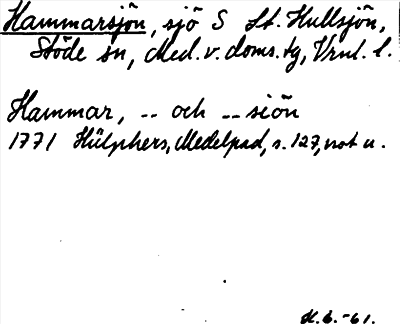 Hammarsjön, sjö S St. Hullsjön,
Stöde sn, Med. v. doms. tg, Vrnl. l.
Hammar, -- och -- siön
1771 Hülphers, Medelpad, s. 127, not u.
H.b. -61.